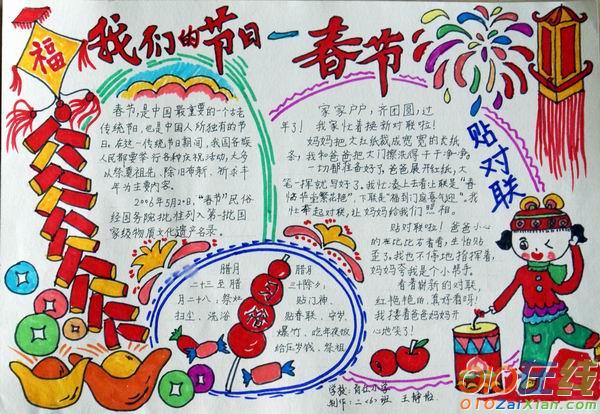 福
我们的节日一春节
春节,是中国最重要的一个古老
传统节日,也是中国人所独有的节
日。在这一传统节日期间,我国各族
人民都要举行各种庆祝活动,大多
以祭奠祖先、除旧布新、祈求丰
年为主要内容。
2006年5月20日,“春节”民俗
经国务院批准列入第一批国
家级物质文化遗产名录。
家家户户,齐团圆,过
年了!我家忙着换新对联啦!
妈妈把大红纸裁成宽宽的长纸
条,我和爸爸把大门擦洗得干干净净,
一切都准备好了。爸爸展开红纸,大
笔一挥就写好了。我忙凑上去看上联是“春
临华堂繁花艳”,下联是“福到门庭喜气盈”。我
忙举起对联,让妈妈给我们照相。
贴对联
贴对联啦!爸爸小心
的在比比方看看,生怕贴
歪了。我也不停地指挥着,
妈妈夸我是个小帮手。
看着崭新的对联,
红艳艳的,真好看呀!
我搂着爸爸妈妈开
心地笑了!
腊月
二十三至腊
月二十八:祭灶
扫尘、洗浴
习俗
腊月
三十除夕:
贴门神、
贴春联、守岁、
爆竹、吃年夜饭
给压岁钱、祭祖
学校:育红小学
制作:二〈6〉班 王静
OIO在线
OIOZaiXian.com